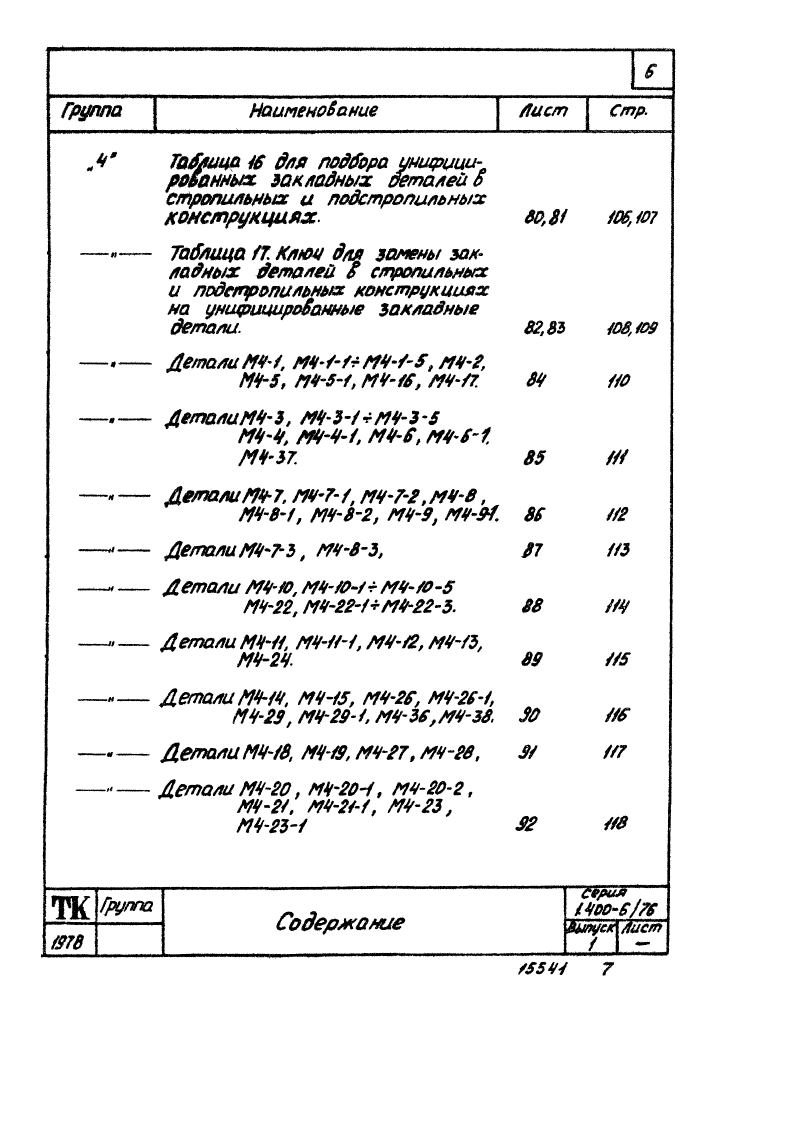 6
Группа Наименование Лист Стр.
„4" Таблица 16 для подбора унифици-
рованных закладных деталей в
стропильных и подстропильных
конструкциях. 80,81 106,107
—"— Таблица 17. Ключ для замены зак-
ладных деталей в стропильных
и подстропильных конструкциях
на унифицированные закладные
детали. 82,83 108,109
—"— Детали М4-1, М4-1-1÷М4-1-5, М4-2,
М4-5, М4-5-1, М4-16, М4-17. 84 110
—"— Детали М4-3, М4-3-1÷М4-3-5
М4-4, М4-4-1, М4-6, М4-6-1,
М4-37. 85 111
—"— Детали М4-7, М4-7-1, М4-7-2, М4-8,
М4-8-1, М4-8-2, М4-9, М4-9-1. 86 112
—"— Детали М4-7-3, М4-8-3, 87 113
—"— Детали М4-10, М4-10-1÷М4-10-5
М4-22, М4-22-1÷М4-22-3. 88 114
—"— Детали М4-11, М4-11-1, М4-12, М4-13,
М4-24. 89 115
—"— Детали М4-14, М4-15, М4-26, М4-26-1,
М4-29, М4-29-1, М4-36, М4-38. 90 116
—"— Детали М4-18, М4-19, М4-27, М4-28, 91 117
—"— Детали М4-20, М4-20-1, М4-20-2,
М4-21, М4-21-1, М4-23,
М4-23-1 92 118
ТК Группа Содержание серия
1.400-6/76
1978 Выпуск Лист
1 —
15541 7